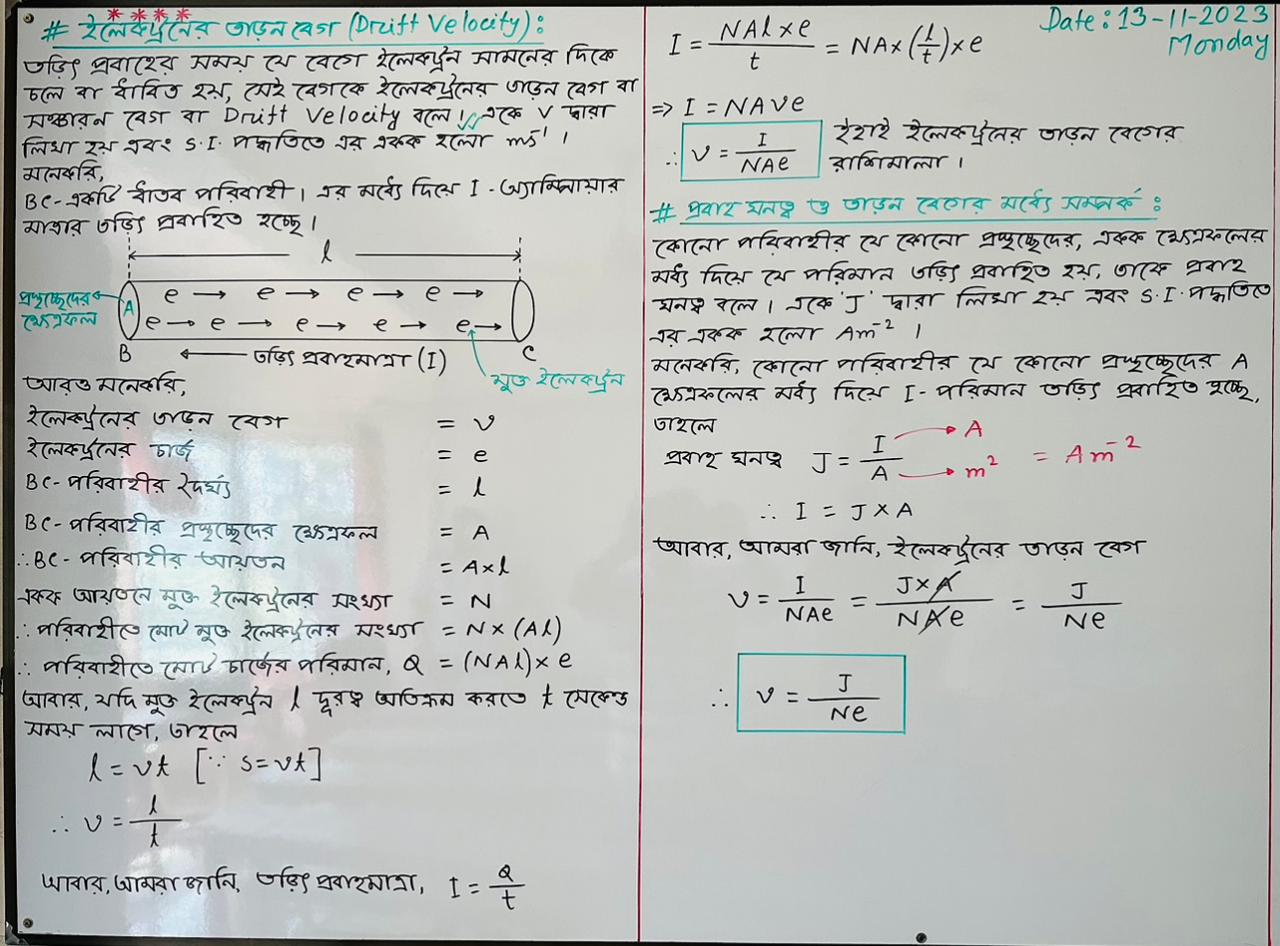 # ইলেকট্রনের তাড়ন বেগ (Drift Velocity) :
তড়িৎ প্রবাহের সময় যে বেগে ইলেকট্রন সামনের দিকে
চলে বা ধাবিত হয়, সেই বেগকে ইলেকট্রনের তাড়ন বেগ বা
সঞ্চারন বেগ বা Drift Velocity বলে। একে v দ্বারা
লিখা হয় এবং S.I. পদ্ধতিতে এর একক হলো ms⁻¹ ।
মনেকরি,
BC-একটি ধাতব পরিবাহী। এর মধ্যে দিয়ে I-অ্যাম্পিয়ার
মাত্রার তড়িৎ প্রবাহিত হচ্ছে।
l
প্রস্থচ্ছেদের ক্ষেত্রফল
A
e → e → e → e →
e → e → e → e → e →
B ← তড়িৎ প্রবাহমাত্রা (I) C
মুক্ত ইলেকট্রন
আরও মনেকরি,
ইলেকট্রনের তাড়ন বেগ = v
ইলেকট্রনের চার্জ = e
BC-পরিবাহীর দৈর্ঘ্য = l
BC-পরিবাহীর প্রস্থচ্ছেদের ক্ষেত্রফল = A
∴ BC-পরিবাহীর আয়তন = A×l
একক আয়তনে মুক্ত ইলেকট্রনের সংখ্যা = N
∴ পরিবাহীতে মোট মুক্ত ইলেকট্রনের সংখ্যা = N×(Al)
∴ পরিবাহীতে মোট চার্জের পরিমান, Q = (NAl)×e
আবার, যদি মুক্ত ইলেকট্রন l দূরত্ব অতিক্রম করতে t সেকেন্ড
সময় লাগে, তাহলে
l = vt [∵ s=vt]
∴ v = l/t
আবার, আমরা জানি, তড়িৎ প্রবাহমাত্রা, I = Q/t
Date: 13-11-2023
Monday
I = NAl×e/t = NA×(l/t)×e
⇒ I = NAve
∴ v = I/NAe ইহাই ইলেকট্রনের তাড়ন বেগের
রাশিমালা।
# প্রবাহ ঘনত্ব ও তাড়ন বেগের মধ্যে সম্পর্ক :
কোনো পরিবাহীর যে কোনো প্রস্থচ্ছেদের, একক ক্ষেত্রফলের
মধ্য দিয়ে যে পরিমান তড়িৎ প্রবাহিত হয়, তাকে প্রবাহ
ঘনত্ব বলে। একে 'J' দ্বারা লিখা হয় এবং S.I. পদ্ধতিতে
এর একক হলো Am⁻² ।
মনেকরি, কোনো পরিবাহীর যে কোনো প্রস্থচ্ছেদের A
ক্ষেত্রফলের মধ্য দিয়ে I-পরিমান তড়িৎ প্রবাহিত হচ্ছে,
তাহলে
প্রবাহ ঘনত্ব J = I/A → A → m² = Am⁻²
∴ I = J×A
আবার, আমরা জানি, ইলেকট্রনের তাড়ন বেগ
v = I/NAe = J×A/NAe = J/Ne
∴ v = J/Ne